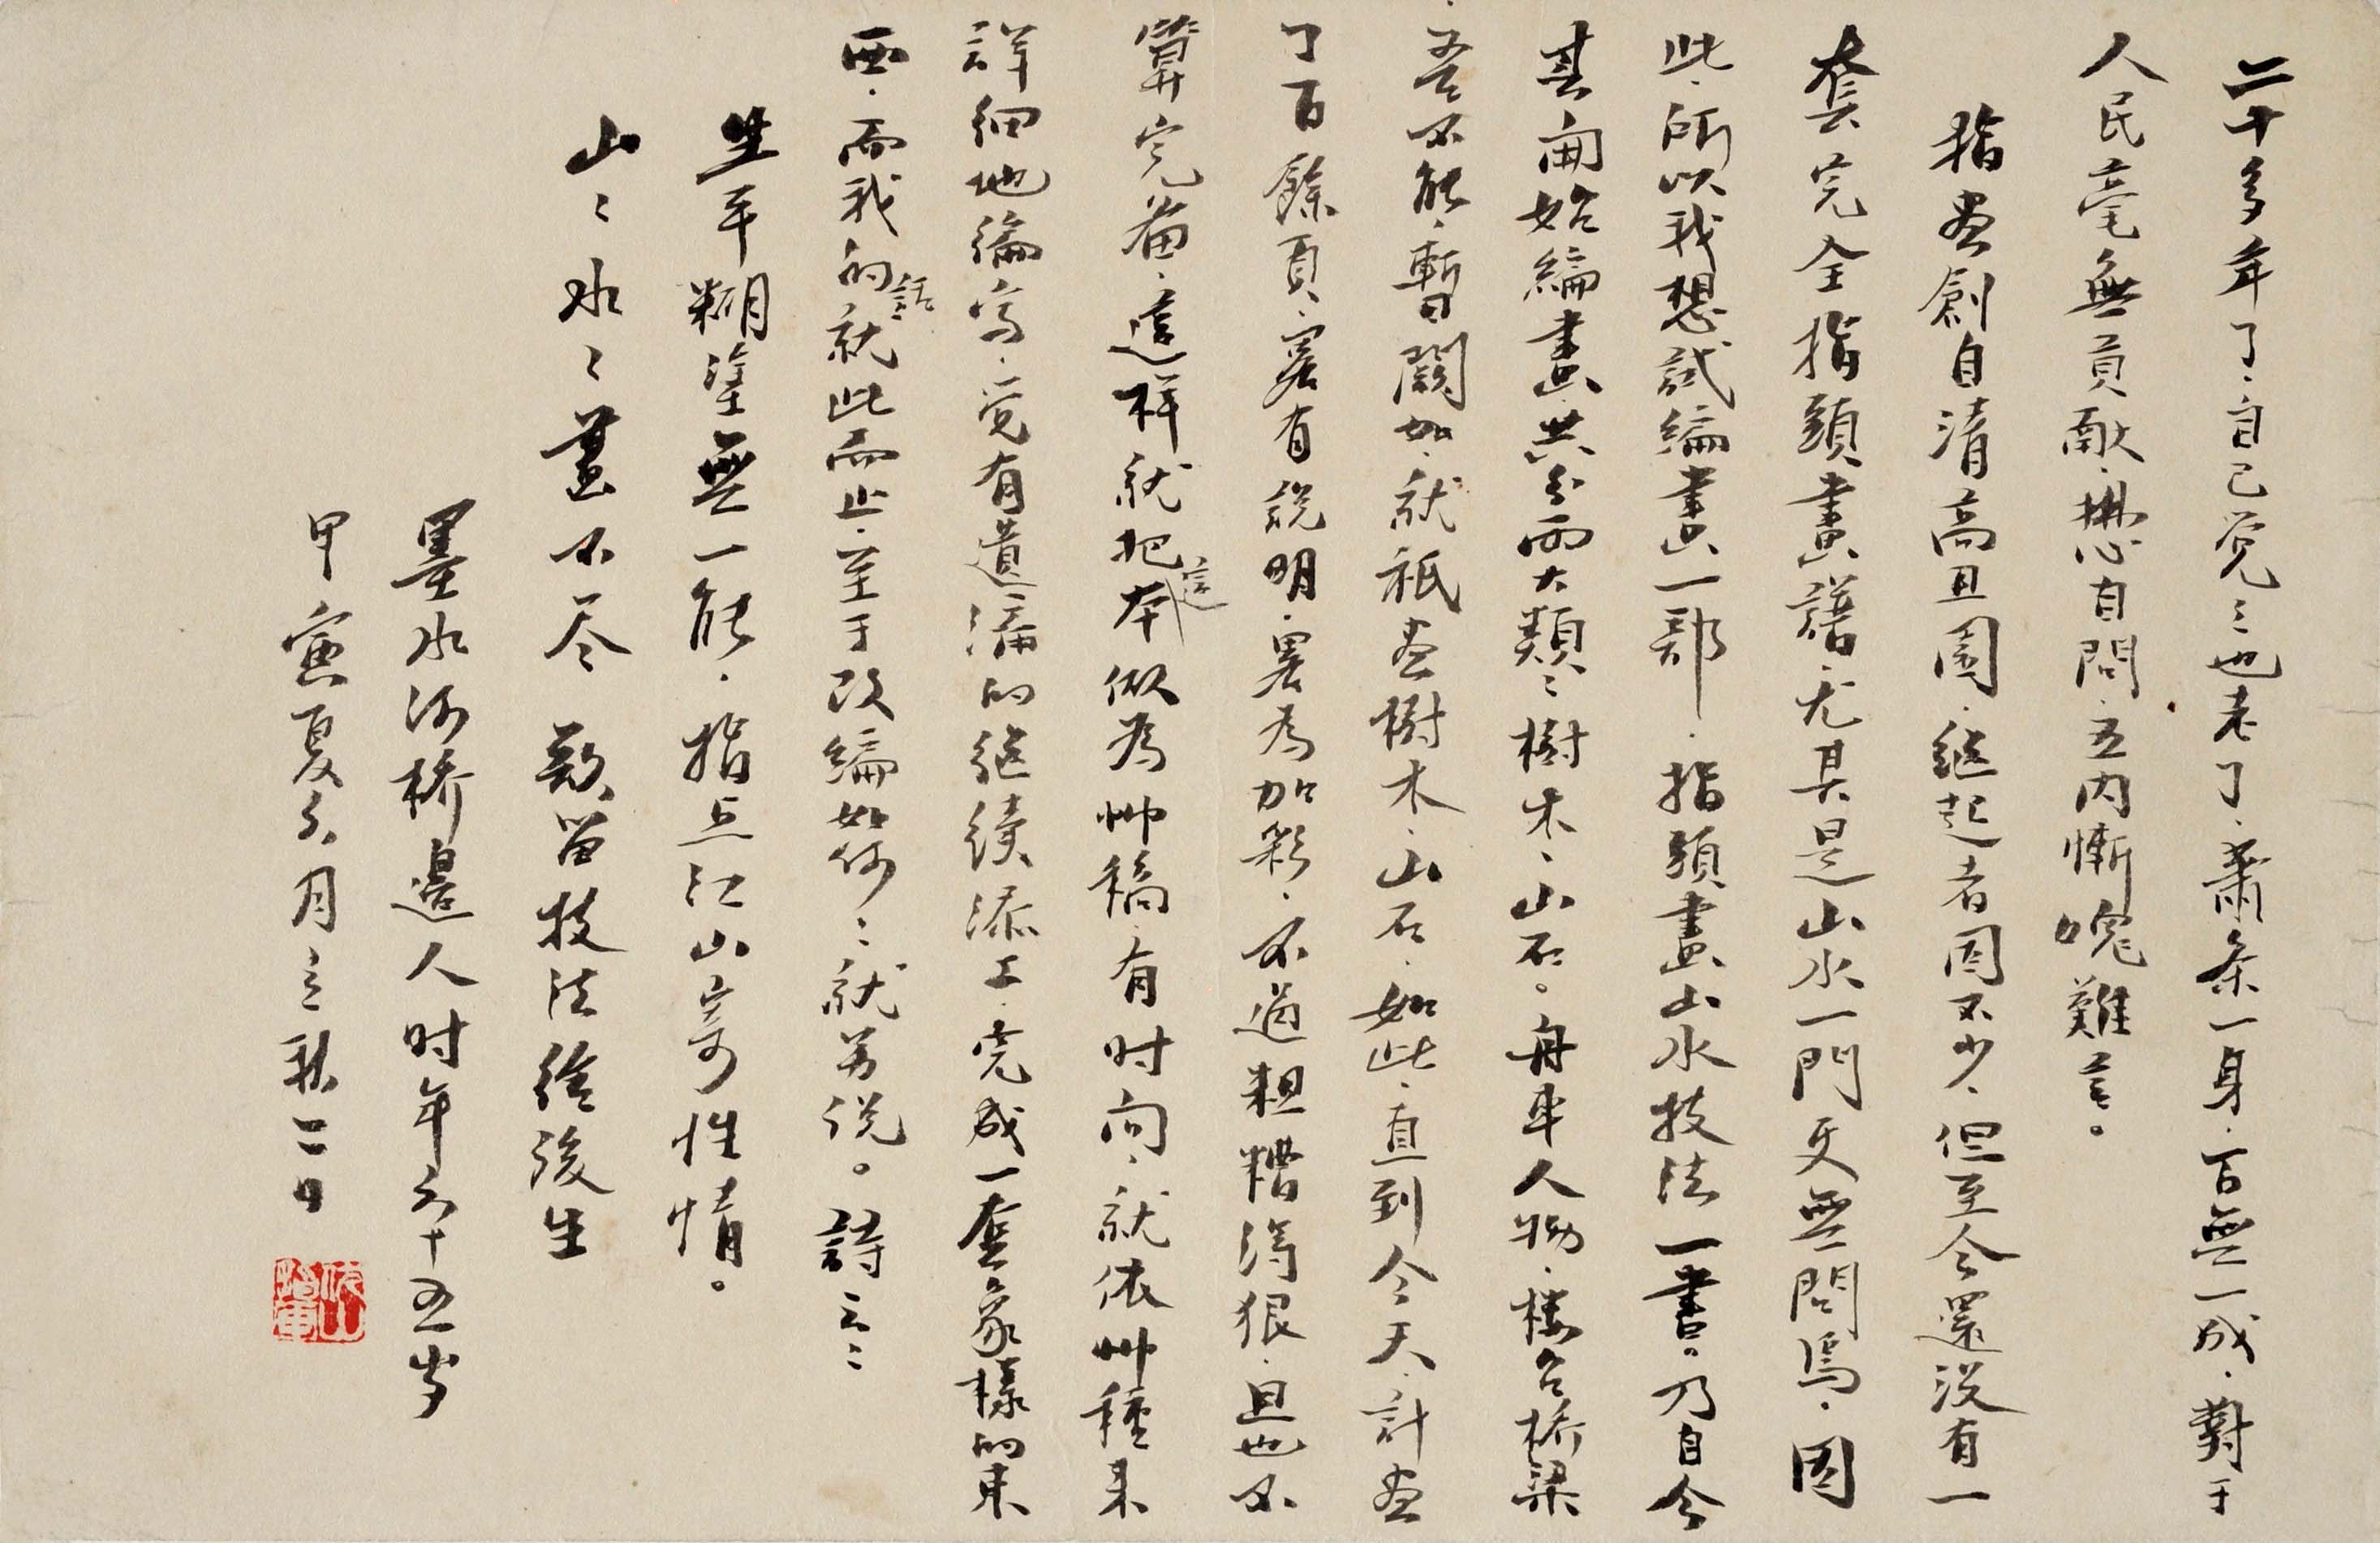 二十多年了.自己觉〻也老了.萧条一身.百無一成.對于
人民毫無貢献.撫心自問.五内慚愧難言。
指画創自清高且園.继起者固不少.但至今還没有一
套完全指頭畫譜.尤其是山水一門更無問焉.因
此.所以我想試編畫一部.指頭畫山水技法一書。乃自今
春開始編畫.共分两大類:樹木、山石。舟車人物.樓台橋梁
吾不能.暫闕如.就祇画樹木、山石.如此.直到今天.計画
了百餘頁.畧有説明.畧為加彩.不過粗糙得狠.且也不
算完備.這样就把這本做為艸稿.有时间.就依艸稿来
詳細地編寫.覚有遺漏的继续添上.完成一套象樣的東
西.而我的話就此而止.至于改编如何〻就另说。詩云:
生平糊塗無一能.指点江山寄性情。
山〻水〻畫不尽 歎留技法給後生
墨水河橋邊人时年六十五岁
甲寅夏六月立秋一日